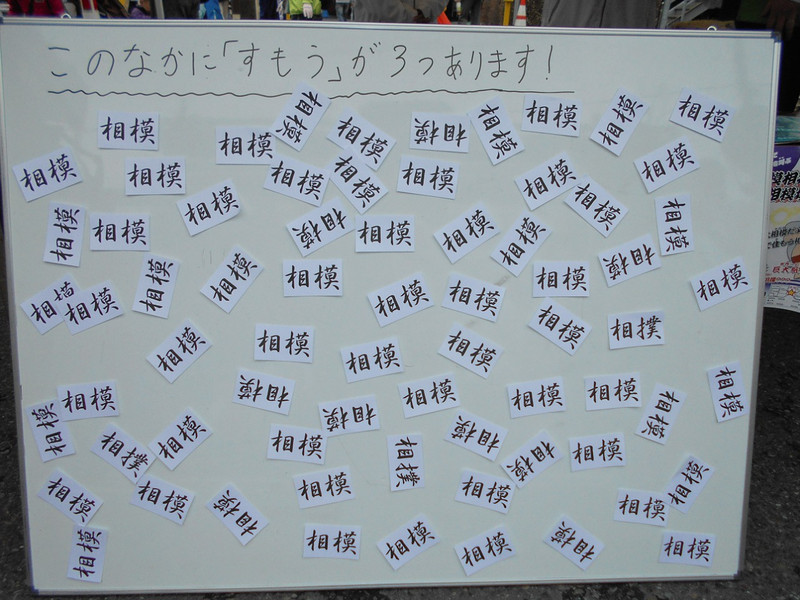 このなかに「すもう」が3つあります!
相模 相模 相模 相模 相模 相模 相模 相模 相模
相模 相模 相模 相模 相模 相模 相模
相模 相模 相模 相模 相模 相模 相模 相模 相模
相模 相模 相模 相模 相模 相模 相模 相模 相模 相模
相模 相模 相模 相模 相模 相撲
相模 相模 相模 相模 相模 相模 相模 相模 相模
相撲 相模 相模 相撲 相模 相模 相模
相模 相模 相模 相模 相模 相模 相模
相模 相模 相模 相模 相模 相模